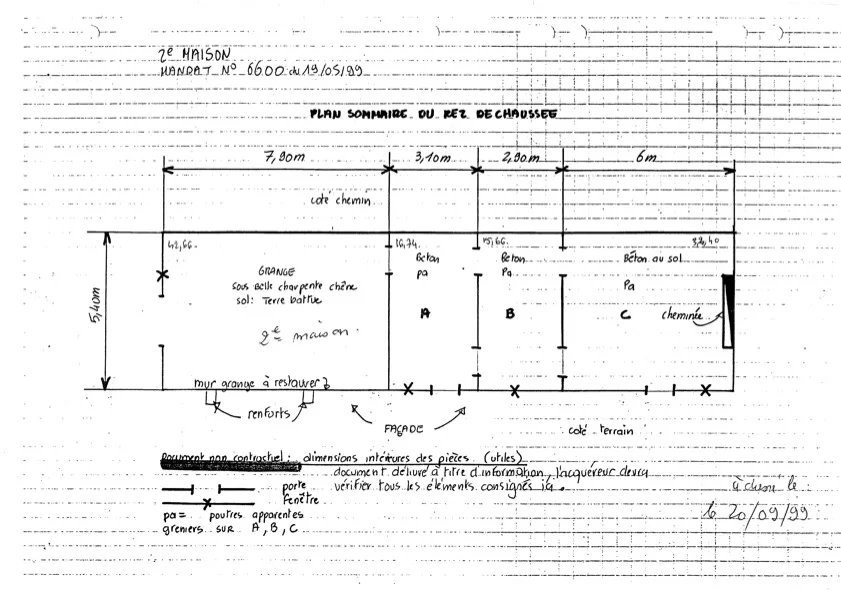 2e MAISON
MANDAT N° 6600 du 19/05/99
PLAN SOMMAIRE DU REZ DE CHAUSSEE
7,90m 3,10m 2,90m 6m
coté chemin
42,66. 16,74. 15,66. 32,40
5,40m
GRANGE
sous Belle charpente chêne
sol: Terre battue
2e maison.
Béton
pa
A
Béton
Pa
B
Béton au sol
Pa
C
cheminée
mur grange à restaurer
renforts
FAÇADE
coté terrain
Document non contractuel: dimensions intérieures des pièces (utiles)
document délivré à titre d'information, l'acquéreur devra
vérifier tous les éléments consignés ici.
porte
fenêtre
pa= poutres apparentes
greniers SUR A, B, C
le 20/09/99